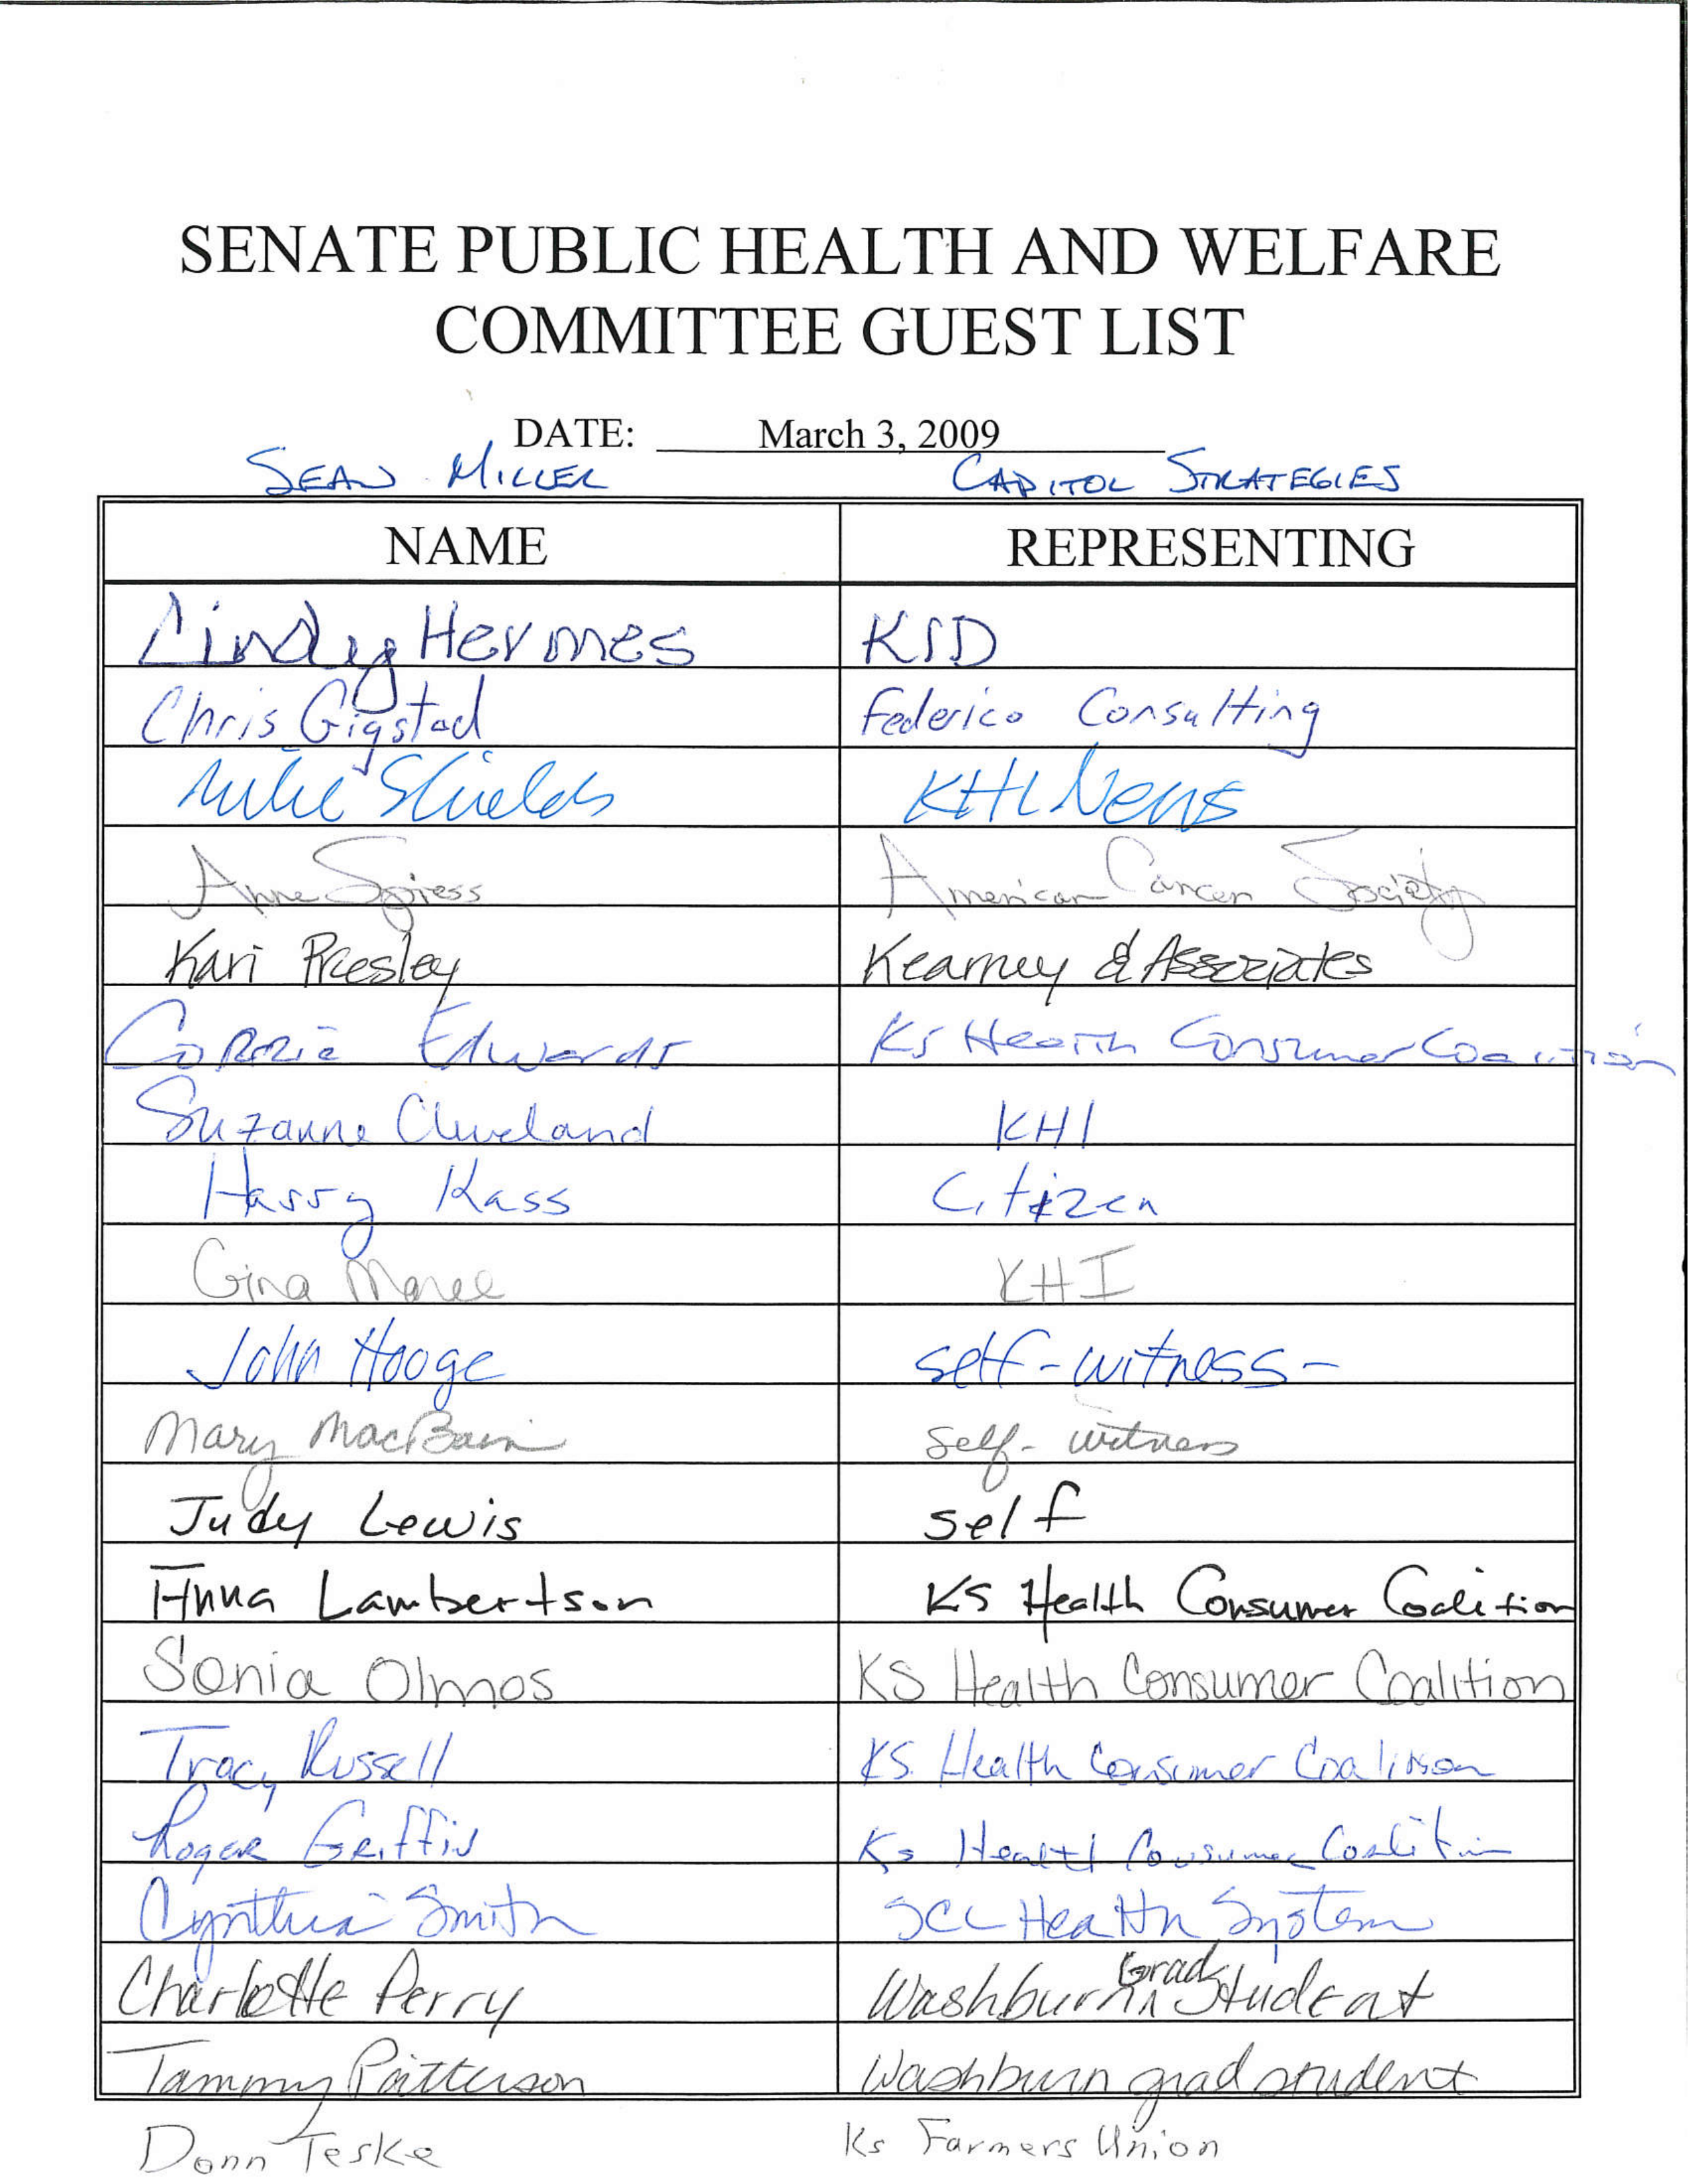 SENATE PUBLIC HEALTH AND WELFARE
COMMITTEE GUEST LIST
DATE: March 3, 2009
SEAN MILLER CAPITOL STRATEGIES
NAME REPRESENTING
Cindy Hermes KID
Chris Gigstad Federico Consulting
Mike Shields KHI News
Anne Spiess American Cancer Society
Kari Presley Kearney & Associates
Corrie Edwards KS Health Consumer Coalition
Suzanne Cleveland KHI
Harry Kass Citizen
Gina Maree KHI
John Hooge self-witness-
Mary MacBain Self-witness
Judy Lewis self
Anna Lambertson KS Health Consumer Coalition
Sonia Olmos KS Health Consumer Coalition
Tracy Russell KS. Health Consumer Coalition
Roger Griffin Ks Health Consumer Coalition
Cynthia Smith SCL Health System
Charlotte Perry Washburn Grad Student
Tammy Patterson Washburn grad student
Donn Teske Ks Farmers Union